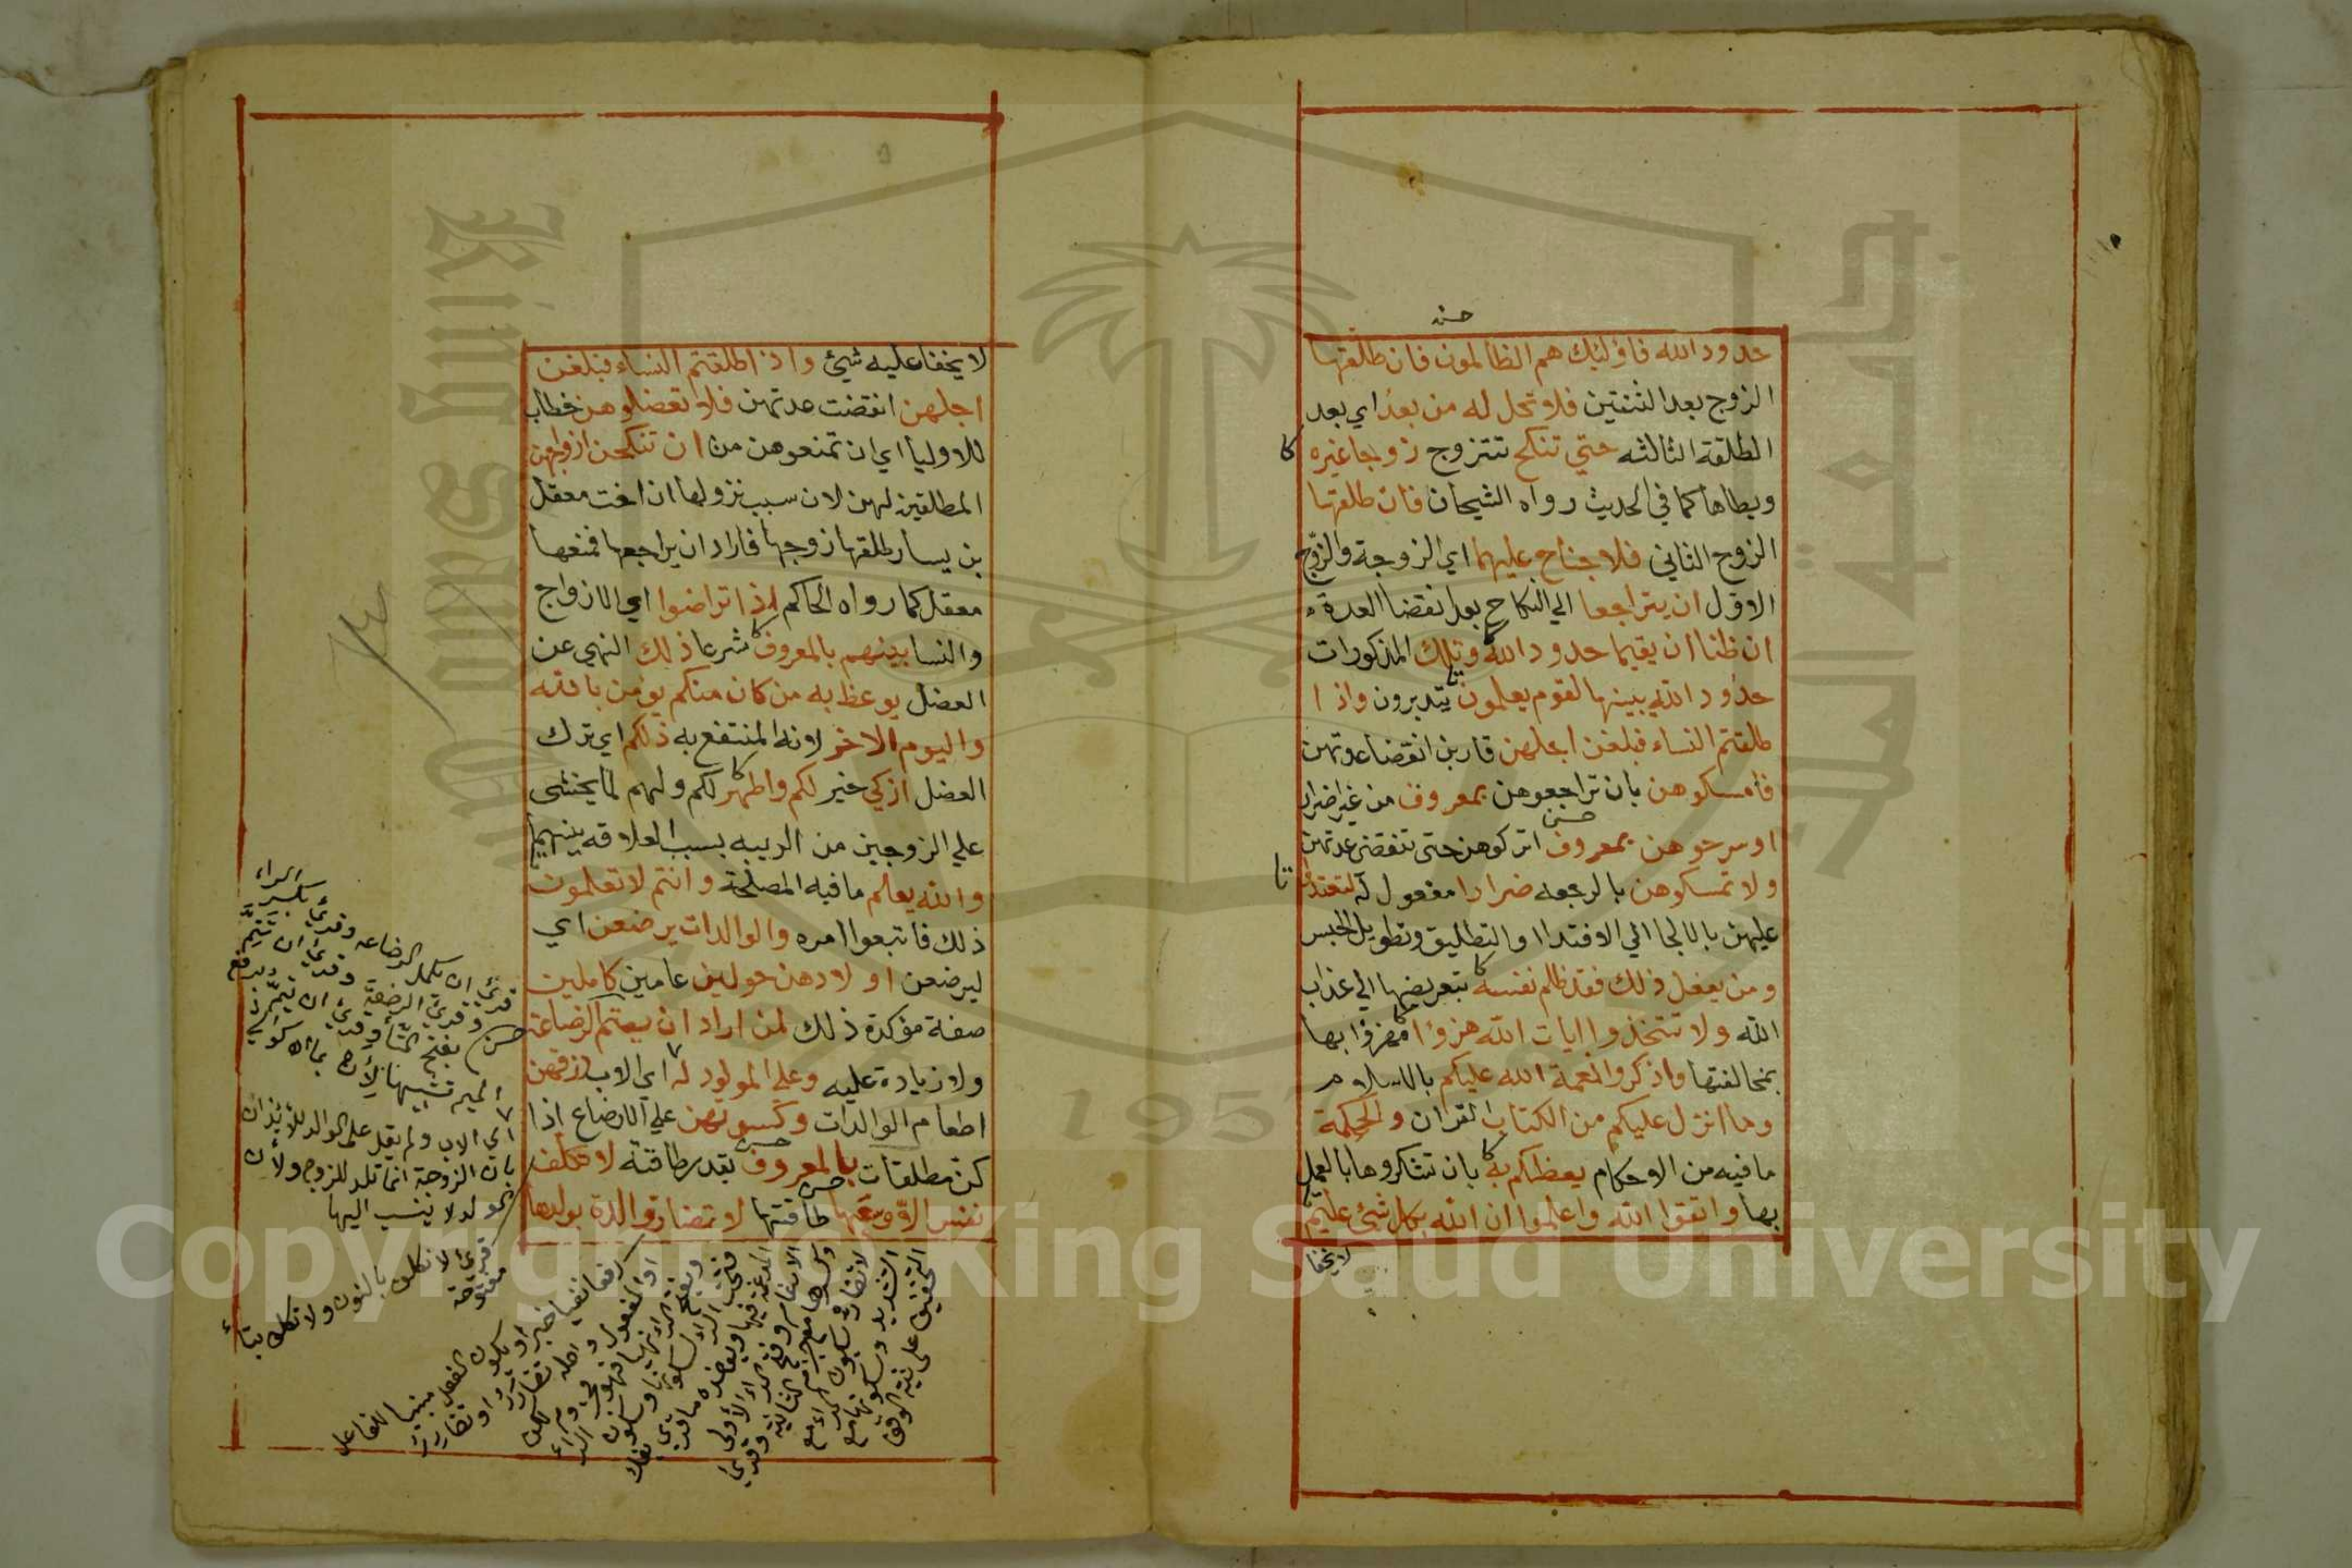 حسن
حدود الله فاؤلئك هم الظالمون فان طلقها
الزوج بعد الثنتين فلا تحل له من بعد اي بعد
الطلقة الثالثه حتي تنكح تتزوج زوجا غيره كا
ويطاها كما في الحديث رواه الشيخان فان طلقها
الزوج الثاني فلا جناح عليهما اي الزوجة والزوج
الاول ان يتراجعا الي النكاح بعد انقضا العدة
ان ظنا ان يقيما حدود الله وتلك المذكورات
حدود الله يبينها لقوم يعلمون يتدبرون واذا
طلقتم النساء فبلغن اجلهن قاربن انقضا عدتهن
فأمسكوهن بان تراجعوهن بمعروف من غير اضرار
حسن
اوسرحوهن بمعروف اتركوهن حتى تنقضي عدتهن
ولا تمسكوهن بالرجعه ضرارا مفعول له لتعتدوا
عليهن بالالجا الي الافتدا والتطليق وتطويل الحبس
ومن يفعل ذلك فقد ظلم نفسه بتعريضها الي عذاب
الله ولا تتخذوا ايات الله هزوا مهزؤا بها
بمخالفتها واذكروا نعمة الله عليكم بالاسلام
وما انزل عليكم من الكتاب القران والحكمة
ما فيه من الاحكام يعظكم به بان تشكروها بالعمل
بها واتقوا الله واعلموا ان الله بكل شئ عليم
لا يخفا
لا يخفا عليه شيئ واذا طلقتم النساء فبلغن
اجلهن انقضت عدتهن فلا تعضلوهن خطاب
للاوليا اي ان تمنعوهن من ان تنكحن ازواجهن
المطلقين لهن لان سبب نزولها ان اخت معقل
بن يسار طلقها زوجها فاراد ان يراجعها فمنعها
معقل كما رواه الحاكم اذا تراضوا اي الازواج
والنسا بينهم بالمعروف شرعا ذلك النهي عن
العضل يوعظ به من كان منكم يؤمن بالله
واليوم الاخر لانه المنتفع به ذلكم اي ترك
العضل ازكي خير لكم واطهر لكم ولهم لما يخشى
علي الزوجين من الريبه بسبب العلاقه بينهما
والله يعلم ما فيه المصلحة وانتم لا تعلمون
ذلك فاتبعوا امره والوالدات يرضعن اي
ليرضعن اولادهن حولين عامين كاملين
صفة مؤكدة ذلك لمن اراد ان يتم الرضاعة
ولا زيادة عليه وعلي المولود له اي الاب رزقهن
اطعام الوالدات وكسوتهن علي الارضاع اذا
كن مطلقات بالمعروف بقدر طاقته لا تكلف
نفس الا وسعها طاقتها لا تضار والدة بولدها
قرئ ان يكمل الرضاعه وقرئ بكسر الراء
وقرئ الرضعة وقرئ ان تتم
بفتح التا وقرئ ان يتم برفع
الميم تشبيها لأن بما
اي الاب ولم يقل على الوالد للأيذان
بان الزوجة انما تلد للزوج ولأن
المولد لا ينسب اليها
قرئ لا نكلف بالنون ولا تكلف بتاء
مفتوحة
Copyright © King Saud University
King Saud University
جامعة الملك
1957